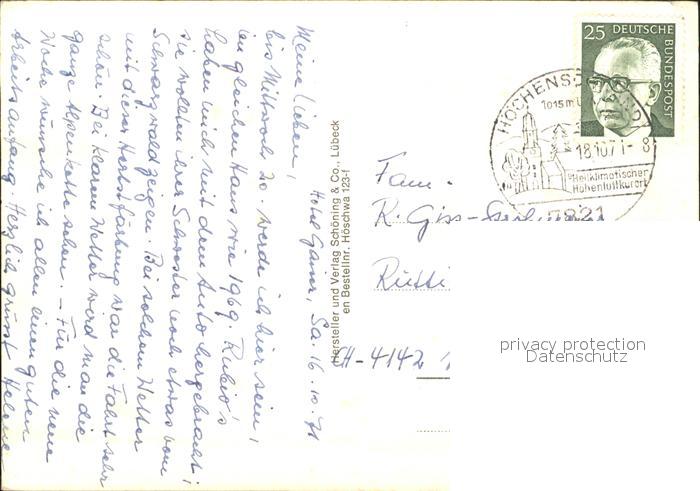 Hotel Gaiser, Sa. 16.10.71
Meine Lieben!
bis Mittwoch 20. werde ich hier sein,
im gleichen Haus wie 1969. Rubio's
haben mich mit dem Auto hergebracht;
sie wollten ihrer Schwester noch etwas vom
Schwarzwald zeigen. Bei solchem Wetter
mit dieser Herbstfärbung war die Fahrt sehr
schön. Bei klarem Wetter wird man die
ganze Alpenkette sehen. – Für die neue
Woche wünsche ich allen einen guten
Arbeitsanfang. Herzlich grüsst Helene
Hersteller und Verlag Schöning & Co., Lübeck
en Bestellnr. Höschwa 123-f
25 DEUTSCHE
BUNDESPOST
HÖCHENS
1015 m
18.10.71-8
Heilklimatischer
Höhenluftkurort
7821
Fam.
K. Giss-
Rütti
CH-4142
privacy protection
Datenschutz